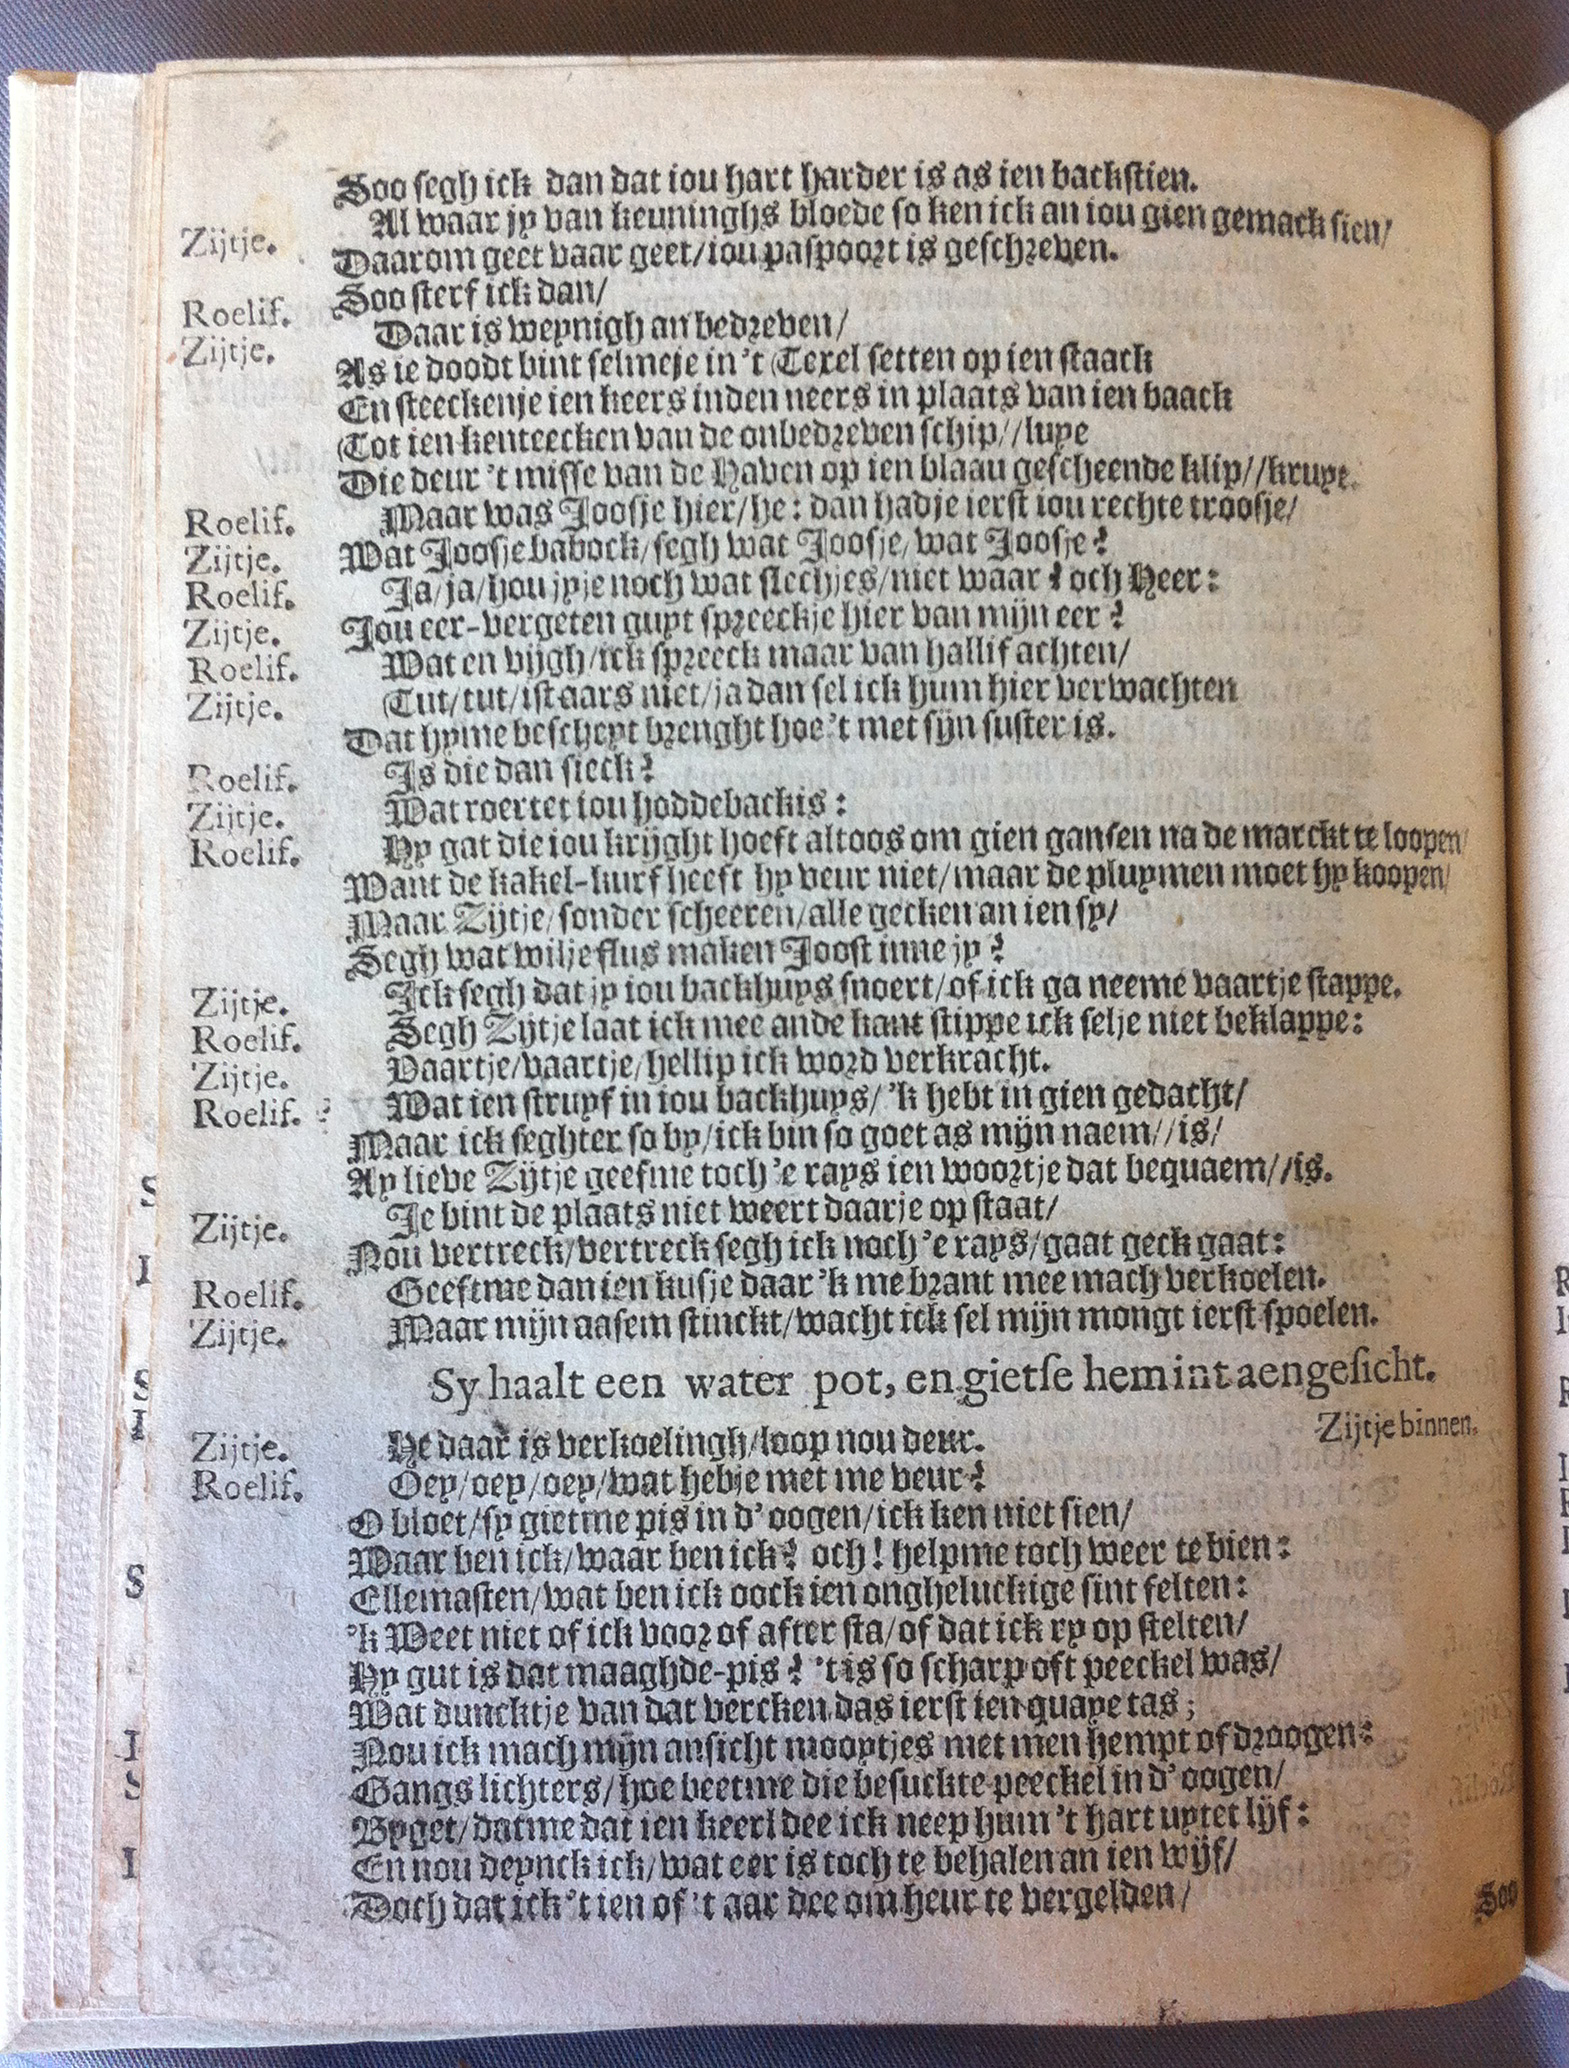 Soo segh ick dan dat iou hart harder is as ien backstien.
Zijtje. Al waar jy van keuninghs bloede so ken ick an iou gien gemack sien/
Daarom geet vaar geet/iou paspoort is geschreven.
Roelif. Soo sterf ick dan/
Zijtje. Daar is weynigh an bedreven/
As ie doodt bint selmeje in 't Texel setten op ien staack
En steeckenje ien keers inden neers in plaats van ien baack
Tot ien kenteecken van de onbedreven schip//luye
Die deur 't misse van de Haven op ien blaau gescheende klip//kruye.
Roelif. Maar was Joosje hier/he: dan hadje ierst iou rechte troosje/
Zijtje. Wat Joosje babock/segh wat Joosje/wat Joosje?
Roelif. Ja/ja/hou jyje noch wat slechjes/niet waar? och Heer:
Zijtje. Jou eer-vergeten guyt spreeckje hier van mijn eer?
Roelif. Wat en vijgh/ick spreeck maar van hallif achten/
Zijtje. Tut/tut/ist aars niet/ja dan sel ick hum hier verwachten
Dat hyme bescheyt brenght hoe 't met sijn suster is.
Roelif. Is die dan sieck?
Zijtje. Wat roertet iou hoddebackis:
Roelif. Hy gat die iou krijght hoeft altoos om gien gansen na de marckt te loopen/
Want de kakel-kurf heeft hy veur niet/maar de pluymen moet hy koopen/
Maar Zijtje/sonder scheeren/alle gecken an ien sy/
Segh wat wilje flus maken Joost inne jy?
Zijtje. Ick segh dat jy iou backhuys snoert/of ick ga neeme vaartje stappe.
Roelif. Segh Zijtje laat ick mee ande kant stippe ick selje niet beklappe:
Zijtje. Vaartje/vaartje/hellip ick word verkracht.
Roelif. Wat ien struyf in iou backhuys/'k hebt in gien gedacht/
Maar ick seghter so by/ick bin so goet as mijn naem//is/
Ay lieve Zijtje geefme toch 'e rays ien woortje dat bequaem//is.
Zijtje. Je bint de plaats niet weert daarje op staat/
Nou vertreck/vertreck segh ick noch 'e rays/gaat geck gaat:
Roelif. Geeftme dan ien kusje daar 'k me brant mee mach verkoelen.
Zijtje. Maar mijn aasem stinckt/wacht ick sel mijn mongt ierst spoelen.
Sy haalt een water pot, en gietse hem int aengesicht.
Zijtje binnen.
Zijtje. He daar is verkoelingh/loop nou deur.
Roelif. Oey/oey/oey/wat hebje met me veur?
O bloet/sy gietme pis in d' oogen/ick ken niet sien/
Waar ben ick/waar ben ick? och! helpme toch weer te bien:
Ellemasten/wat ben ick oock ien ongheluckige sint felten:
'k Weet niet of ick voor of after sta/of dat ick ry op stelten/
Hy gut is dat maaghde-pis? 'tis so scharp oft peeckel was/
Wat duncktje van dat vercken das ierst ien quaye tas;
Nou ick mach mijn ansicht mooytjes met men hempt of droogen:
Gangs lichters/hoe beetme die besuckte peeckel in d' oogen/
Byget/datme dat ien keerl dee ick neep hum 't hart uytet lijf:
En nou deynck ick/wat eer is toch te behalen an ien wijf/
Doch dat ick 't ien of 't aar dee om heur te vergelden/
Soo